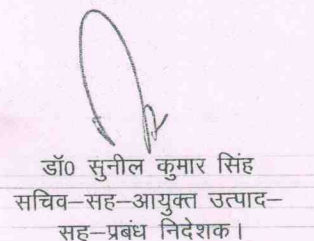 डॉ0 सुनील कुमार सिंह
सचिव–सह–आयुक्त उत्पाद–
सह–प्रबंध निदेशक।